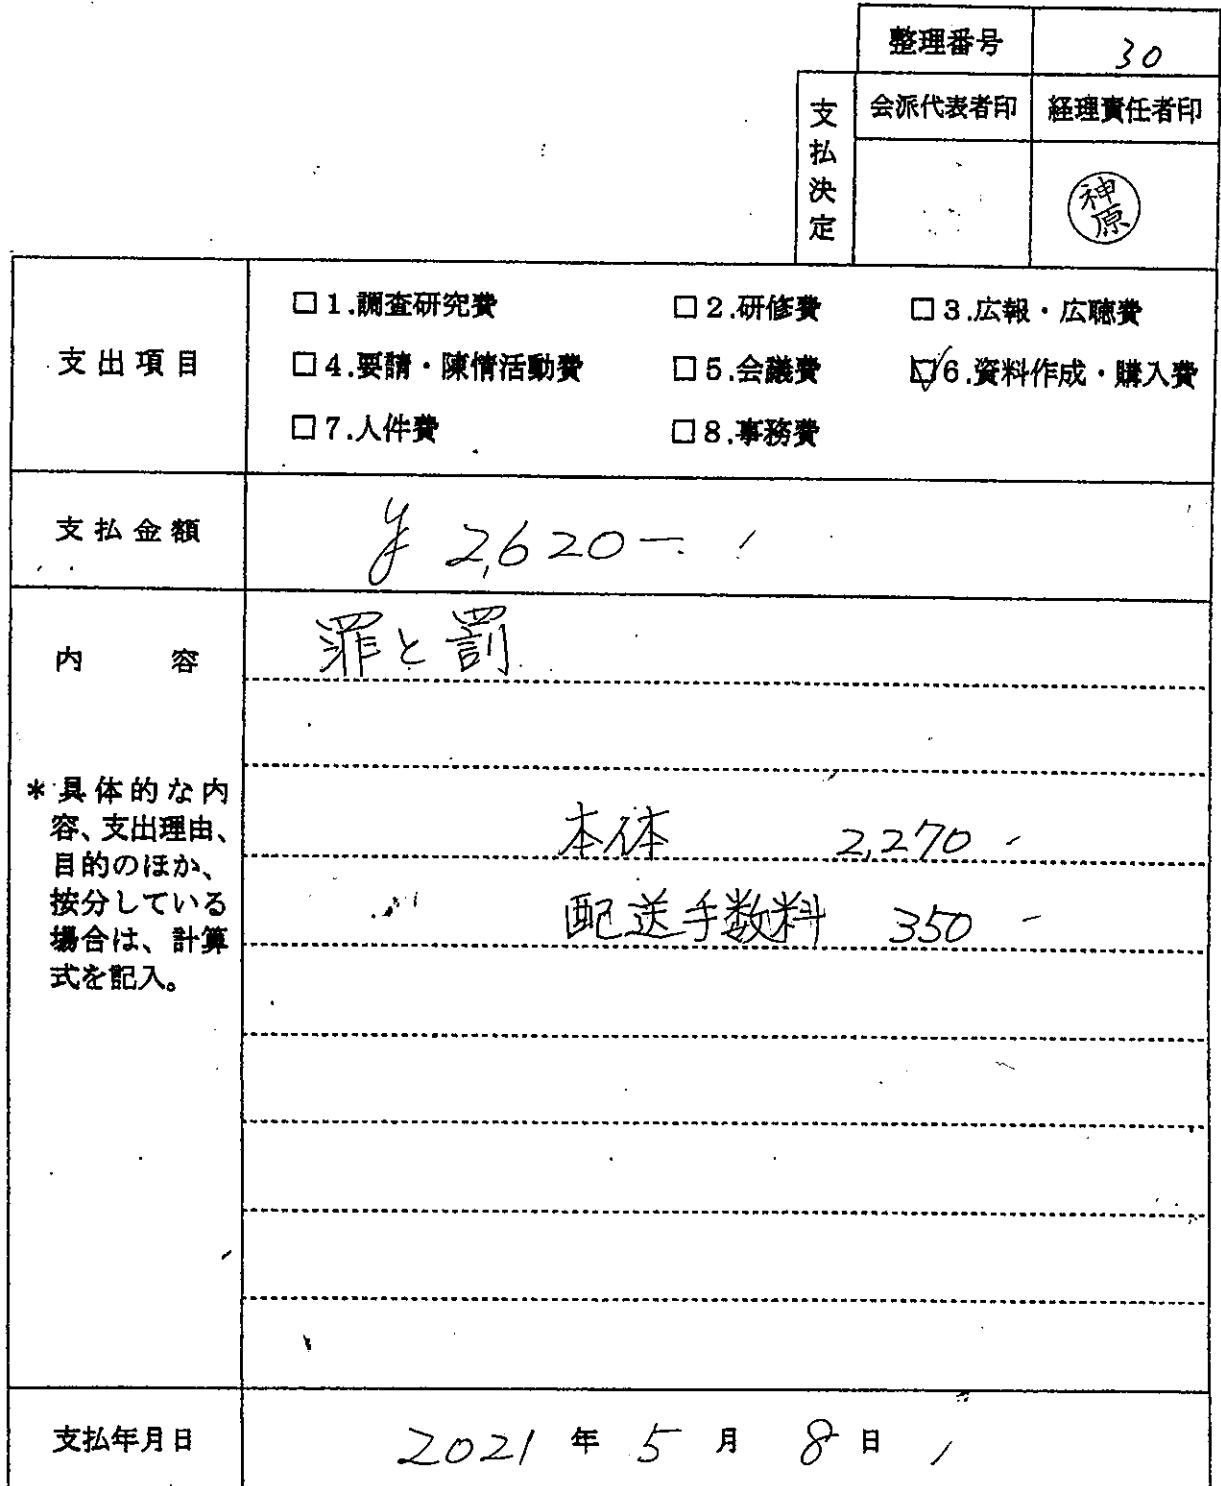 整理番号 30
支払決定 会派代表者印 経理責任者印
神原
支出項目
□1.調査研究費 □2.研修費 □3.広報・広聴費
□4.要請・陳情活動費 □5.会議費 ☑6.資料作成・購入費
□7.人件費 □8.事務費
支払金額 ¥2,620-
内容 罪と罰
*具体的な内
容、支出理由、
目的のほか、
按分している
場合は、計算
式を記入。
本体 2,270-
配送手数料 350-
支払年月日 2021年5月8日